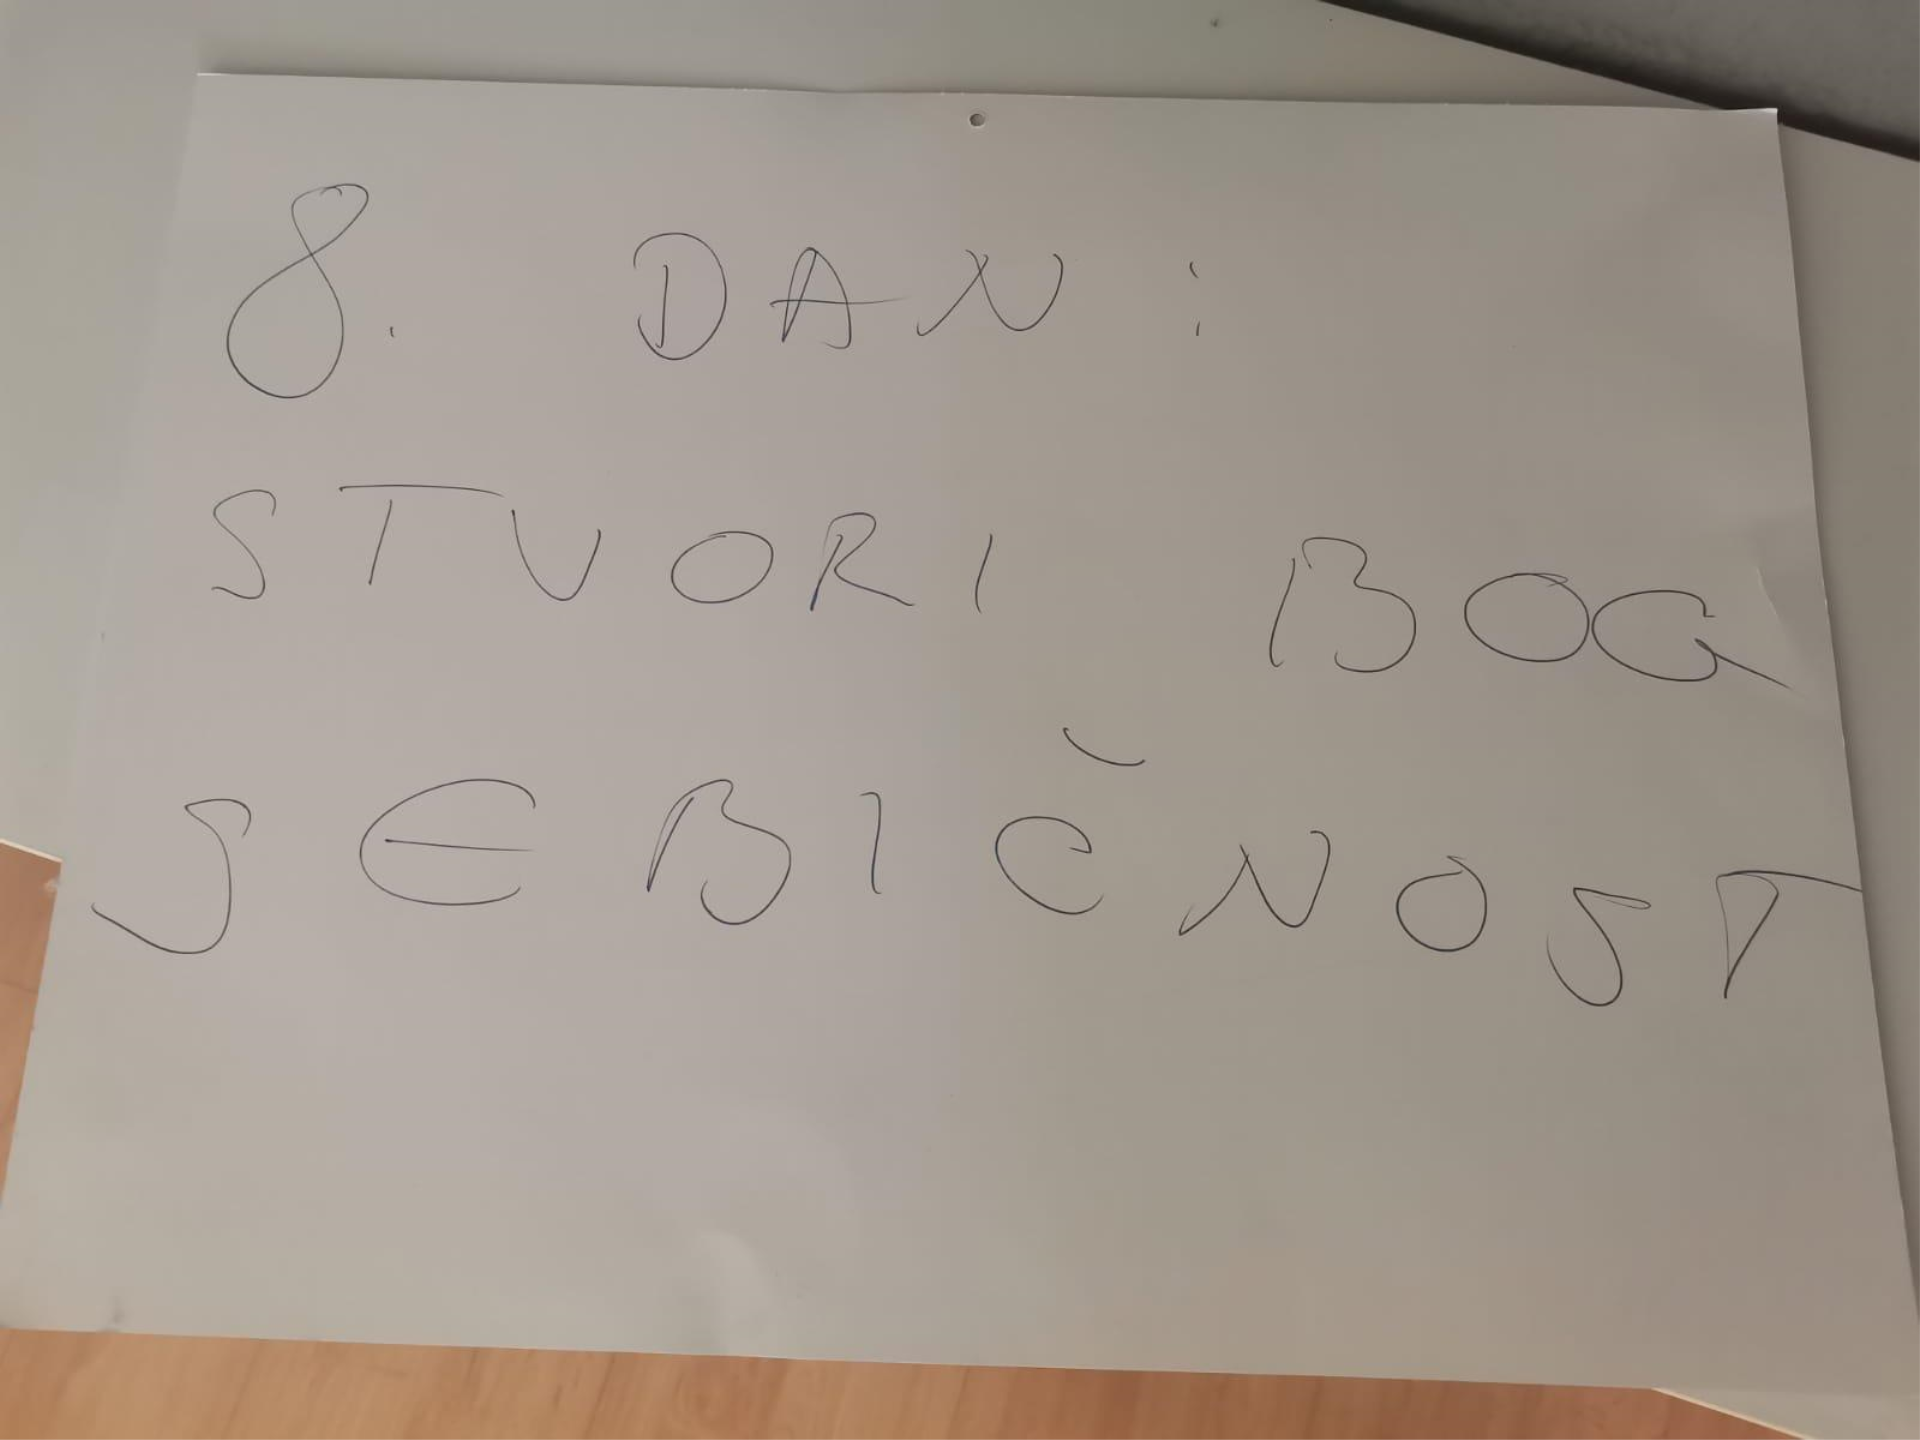 8. DAN:
STVORI BOG
SEBIČNOST